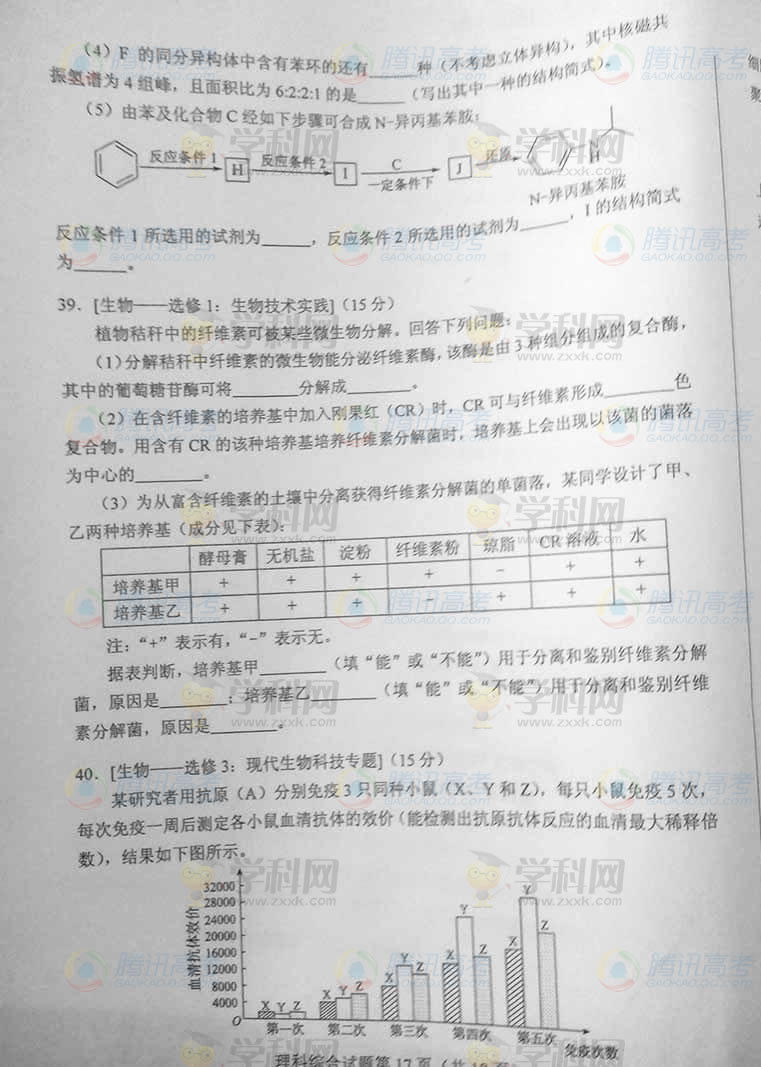 （4）F 的同分异构体中含有苯环的还有______种（不考虑立体异构），其中核磁共
振氢谱为 4 组峰，且面积比为 6:2:2:1 的是______（写出其中一种的结构简式）。
（5）由苯及化合物 C 经如下步骤可合成 N-异丙基苯胺：
反应条件 1 H 反应条件 2 I C 一定条件下 J 还原 N H
N-异丙基苯胺
反应条件 1 所选用的试剂为______，反应条件 2 所选用的试剂为______，I 的结构简式
为______。
39．[生物——选修 1：生物技术实践]（15 分）
植物秸秆中的纤维素可被某些微生物分解。回答下列问题：
（1）分解秸秆中纤维素的微生物能分泌纤维素酶，该酶是由 3 种组分组成的复合酶，
其中的葡萄糖苷酶可将________分解成________。
（2）在含纤维素的培养基中加入刚果红（CR）时，CR 可与纤维素形成________色
复合物。用含有 CR 的该种培养基培养纤维素分解菌时，培养基上会出现以该菌的菌落
为中心的________。
（3）为从富含纤维素的土壤中分离获得纤维素分解菌的单菌落，某同学设计了甲、
乙两种培养基（成分见下表）：
酵母膏 无机盐 淀粉 纤维素粉 琼脂 CR 溶液 水
培养基甲 + + + + - + +
培养基乙 + + + - + + +
注：“+”表示有，“-”表示无。
据表判断，培养基甲________（填“能”或“不能”）用于分离和鉴别纤维素分解
菌，原因是________；培养基乙________（填“能”或“不能”）用于分离和鉴别纤维
素分解菌，原因是________。
40．[生物——选修 3：现代生物科技专题]（15 分）
某研究者用抗原（A）分别免疫 3 只同种小鼠（X、Y 和 Z），每只小鼠免疫 5 次，
每次免疫一周后测定各小鼠血清抗体的效价（能检测出抗原抗体反应的血清最大稀释倍
数），结果如下图所示。
血清抗体效价
32000
28000
24000
20000
16000
12000
8000
4000
O
X Y Z X Y Z X Y Z X Y Z X Y Z
第一次 第二次 第三次 第四次 第五次
免疫次数
理科综合试题第 17 页（共
学科网
www.zxxk.com
腾讯高考
GAOKAO.QQ.COM